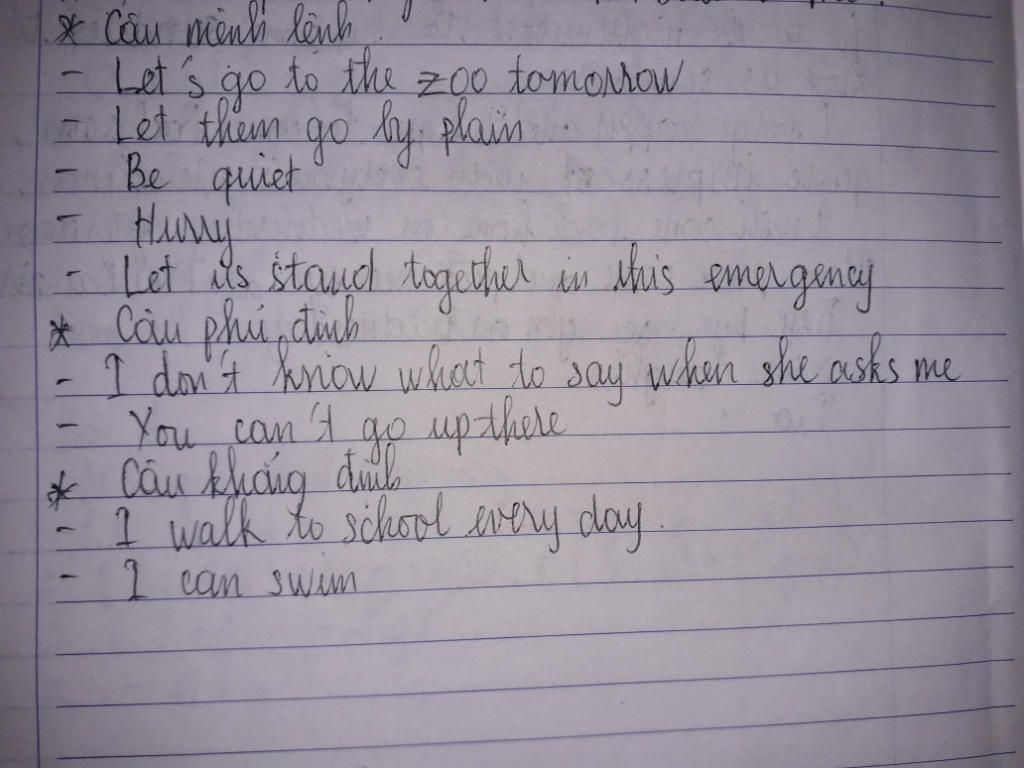 * Câu mệnh lệnh.
- Let's go to the zoo tomorrow
- Let them go by plain
- Be quiet
- Hurry
- Let us stand together in this emergency
* Câu phủ định
- I don't know what to say when she asks me
- You can't go up there
* Câu khẳng định
- I walk to school every day.
- I can swim